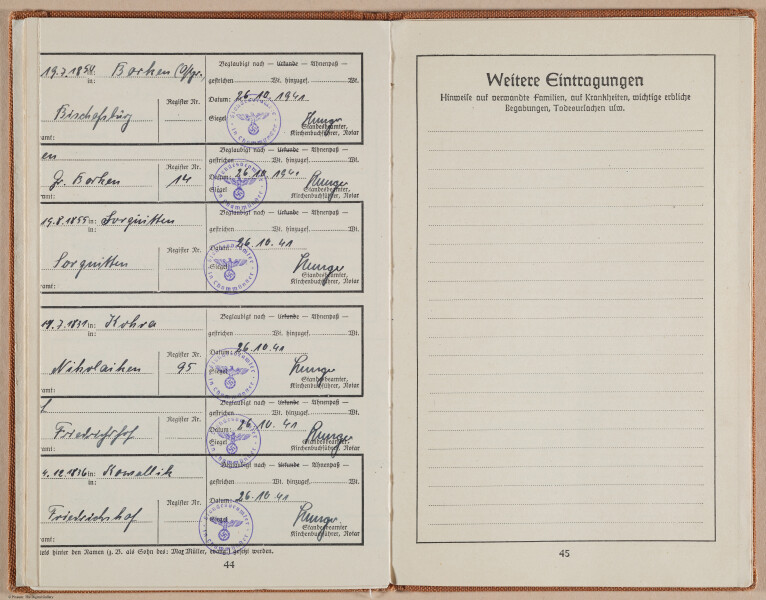 Beglaubigt nach — Urkunde — Ahnenpaß —
19.7.1854 in: Borken (Ostpr.,
in:
gestrichen Wt. hinzugef. Wt.
Register Nr.
Datum: 26.10.1941
Bischofsburg
Siegel
Runge
Standesbeamter,
Kirchenbuchführer, Notar
amt:
Beglaubigt nach — Urkunde — Ahnenpaß —
en
gestrichen Wt. hinzugef. Wt.
Register Nr.
Datum: 26.10.1941
Gr. Borken 14
Siegel
Runge
Standesbeamter,
Kirchenbuchführer, Notar
amt:
Beglaubigt nach — Urkunde — Ahnenpaß —
19.8.1855 in: Sorquitten
in:
gestrichen Wt. hinzugef. Wt.
Register Nr.
Datum: 26.10.41
Sorquitten
Siegel
Runge
Standesbeamter,
Kirchenbuchführer, Notar
amt:
Beglaubigt nach — Urkunde — Ahnenpaß —
in: Kohra
in:
gestrichen Wt. hinzugef. Wt.
Register Nr.
Datum: 26.10.41
Nikolaiken 95
Siegel
Runge
Standesbeamter,
Kirchenbuchführer, Notar
amt:
Beglaubigt nach — Urkunde — Ahnenpaß —
gestrichen Wt. hinzugef. Wt.
Register Nr.
Datum: 26.10.41
Friedrichshof
Siegel
Runge
Standesbeamter,
Kirchenbuchführer, Notar
amt:
Beglaubigt nach — Urkunde — Ahnenpaß —
4.12.1836 in: Kowallik
in:
gestrichen Wt. hinzugef. Wt.
Register Nr.
Datum: 26.10.41
Friedrichshof
Siegel
Runge
Standesbeamter
Kirchenbuchführer, Notar
amt:
hierher den Namen (z. B. als Sohn des: Max Müller, evang.) gesetzt werden.
44
Weitere Eintragungen
Hinweise auf verwandte Familien, auf Krankheiten, wichtige erbliche
Begabungen, Todesursachen usw.
45